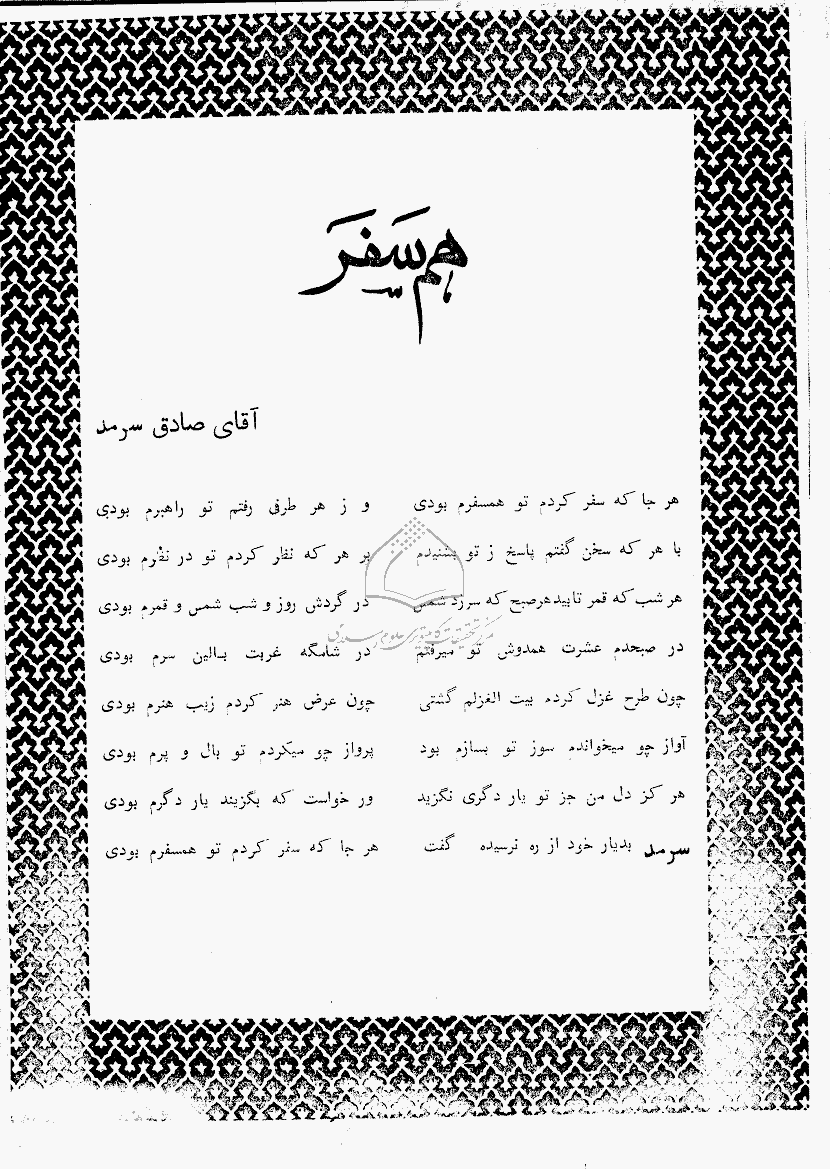 هم سفر
آقای صادق سرمد
هر جا که سفر کردم تو همسفرم بودی و ز هر طرفی رفتم تو راهبرم بودی
با هر که سخن گفتم پاسخ ز تو بشنیدم بر هر که نظر کردم تو در نظرم بودی
هر شب که قمر تابید هر صبح که سرزد شمس در گردش روز و شب شمس و قمرم بودی
در صبحدم عشرت همدوش تو میرفتم در شامگه غربت بالین سرم بودی
چون طرح غزل کردم بیت الغزلم گشتی چون عرض هنر کردم زیب هنرم بودی
آواز چو میخواندم سوز تو بسازم بود پرواز چو میکردم تو بال و پرم بودی
هر کز دل من جز تو یار دگری نگزید ور خواست که بگزیند یار دگرم بودی
سرمد بدیار خود از ره نرسیده گفت هر جا که سفر کردم تو همسفرم بودی
مرکز تحقیقات کامپیوتری علوم اسلامی